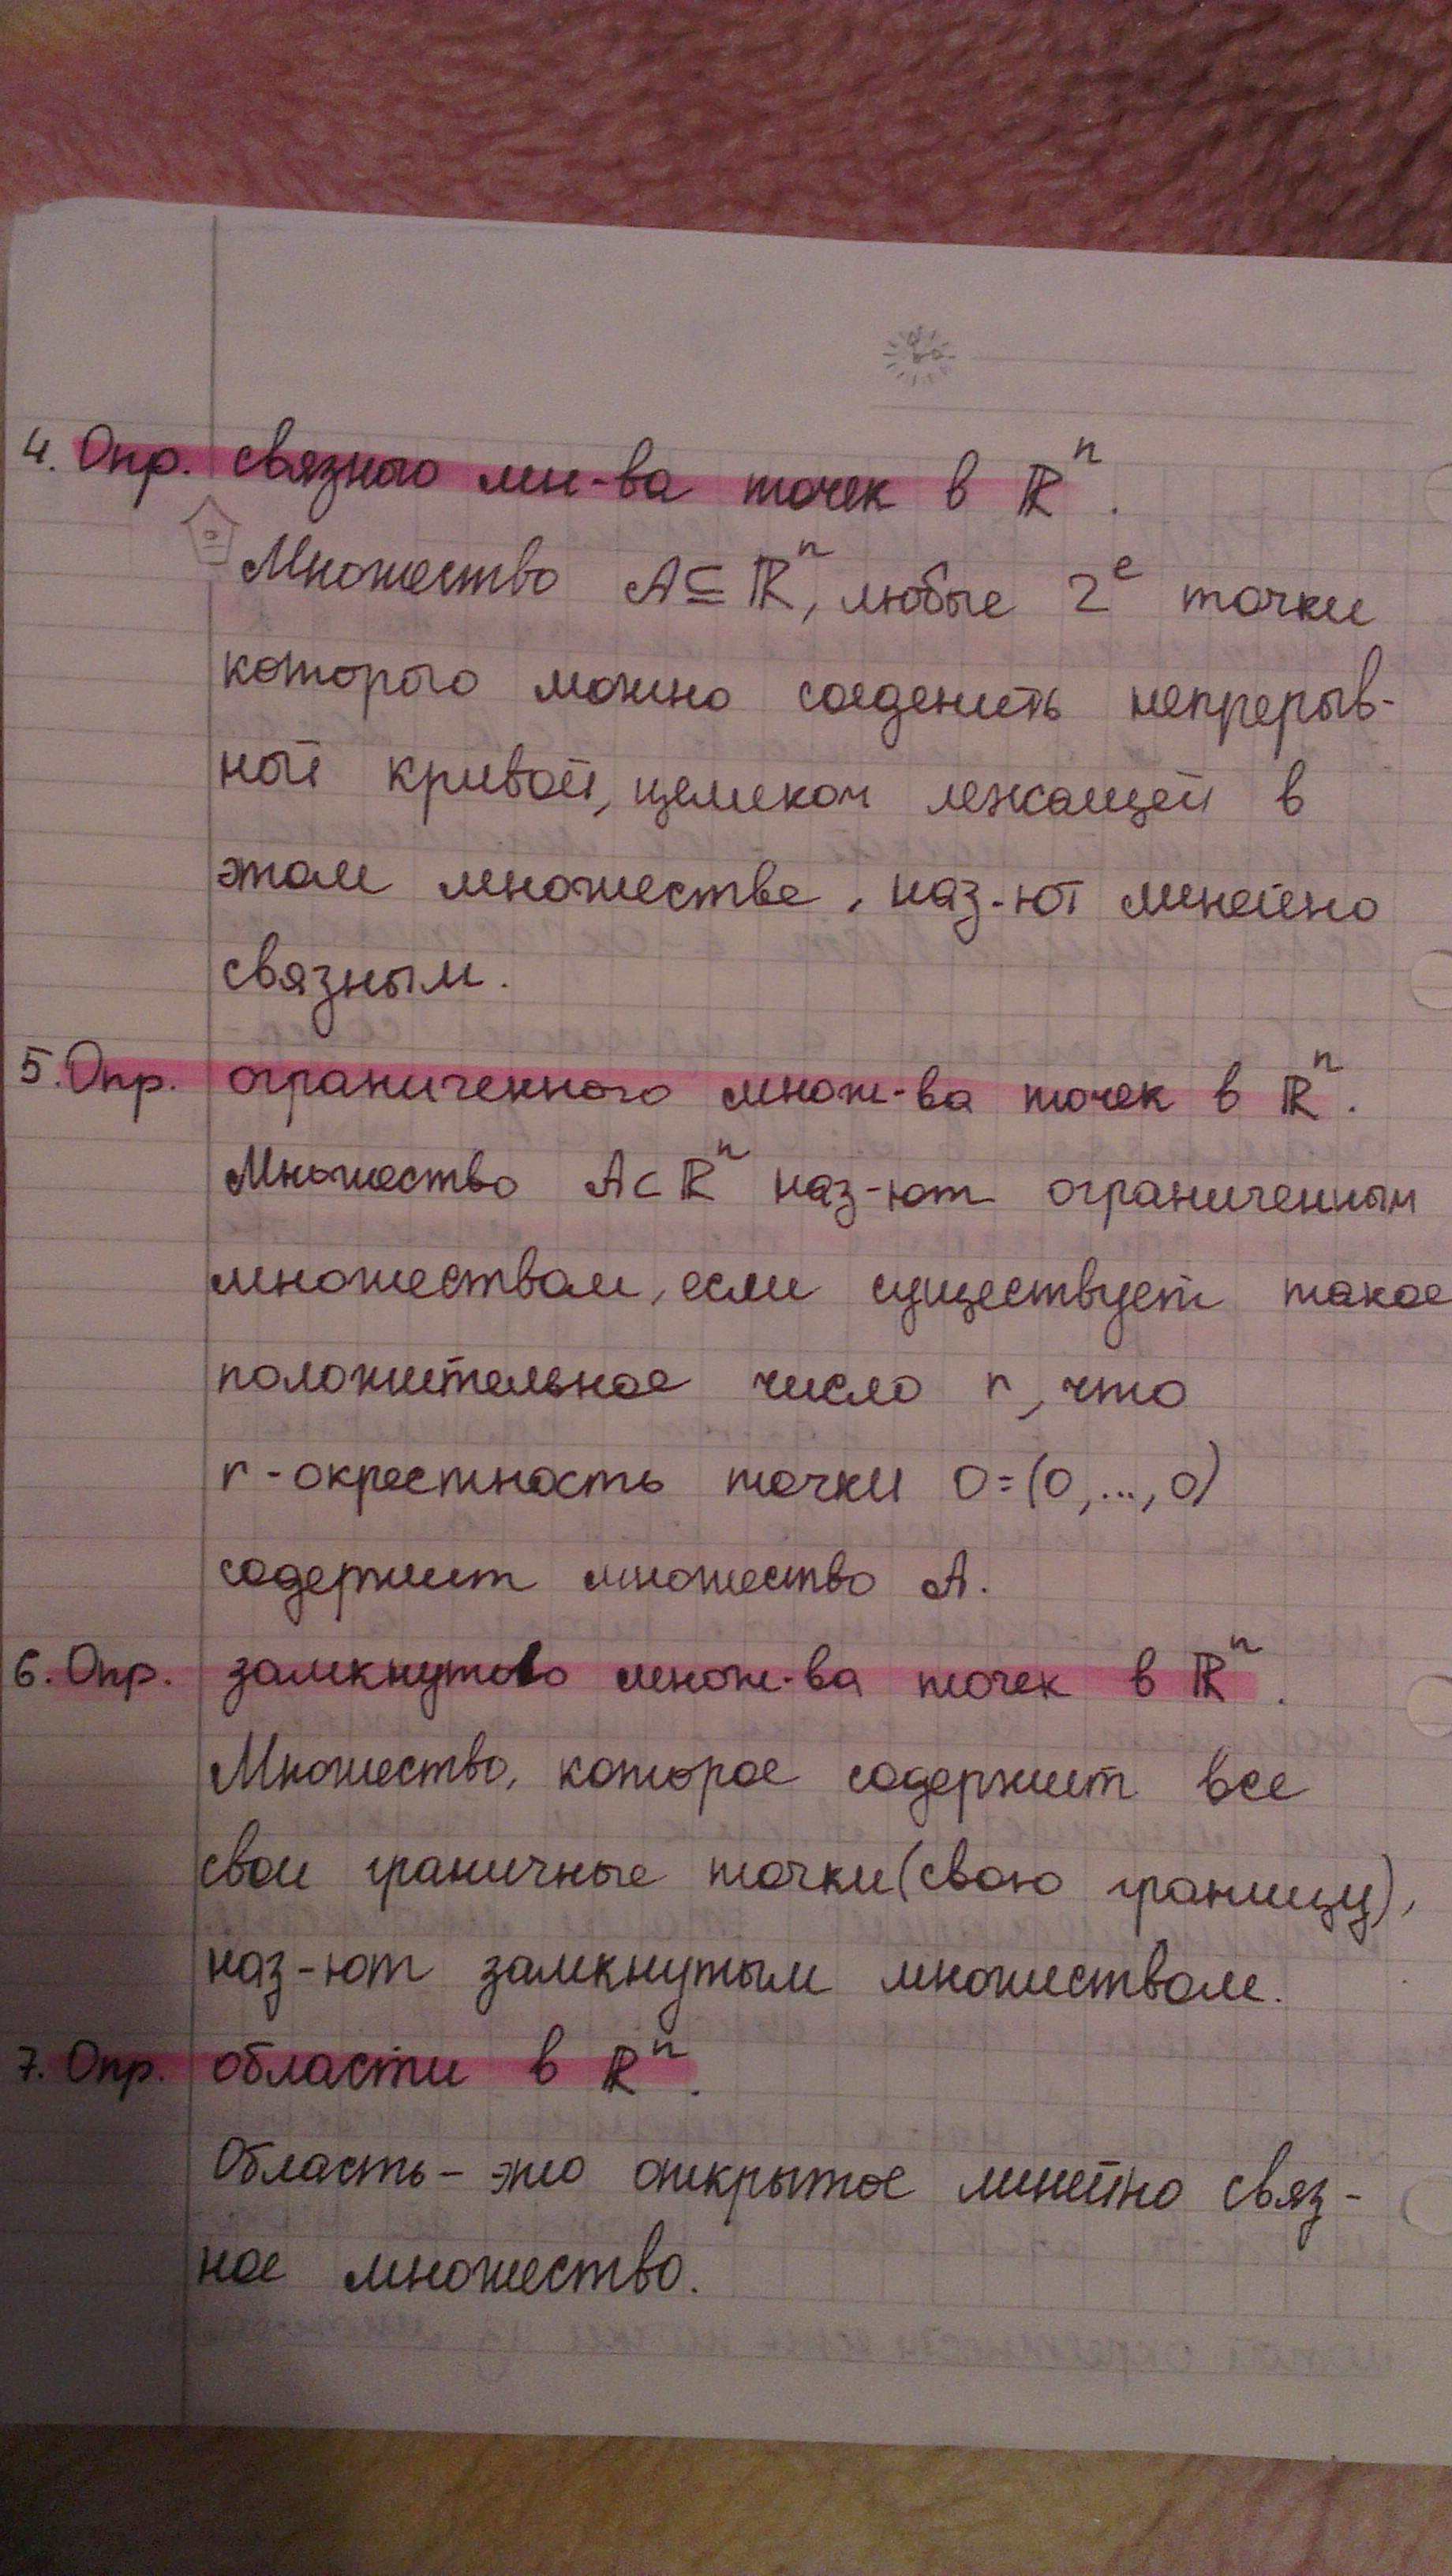 4. Опр. связного мн-ва точек в ℝⁿ.
Множество A⊆ℝⁿ, любые 2ᵉ точки
которого можно соеденить непрерыв-
ной кривой, целиком лежащей в
этом множестве, наз-ют линейно
связным.
5. Опр. ограниченного множ-ва точек в ℝⁿ.
Множество A⊂ℝⁿ наз-ют ограниченным
множеством, если существует такое
положительное число r, что
r-окрестность точки 0=(0,...,0)
содержит множество A.
6. Опр. замкнутого множ-ва точек в ℝⁿ.
Множество, которое содержит все
свои граничные точки (свою границу),
наз-ют замкнутым множеством.
7. Опр. области в ℝⁿ.
Область - это открытое линейно связ-
ное множество.